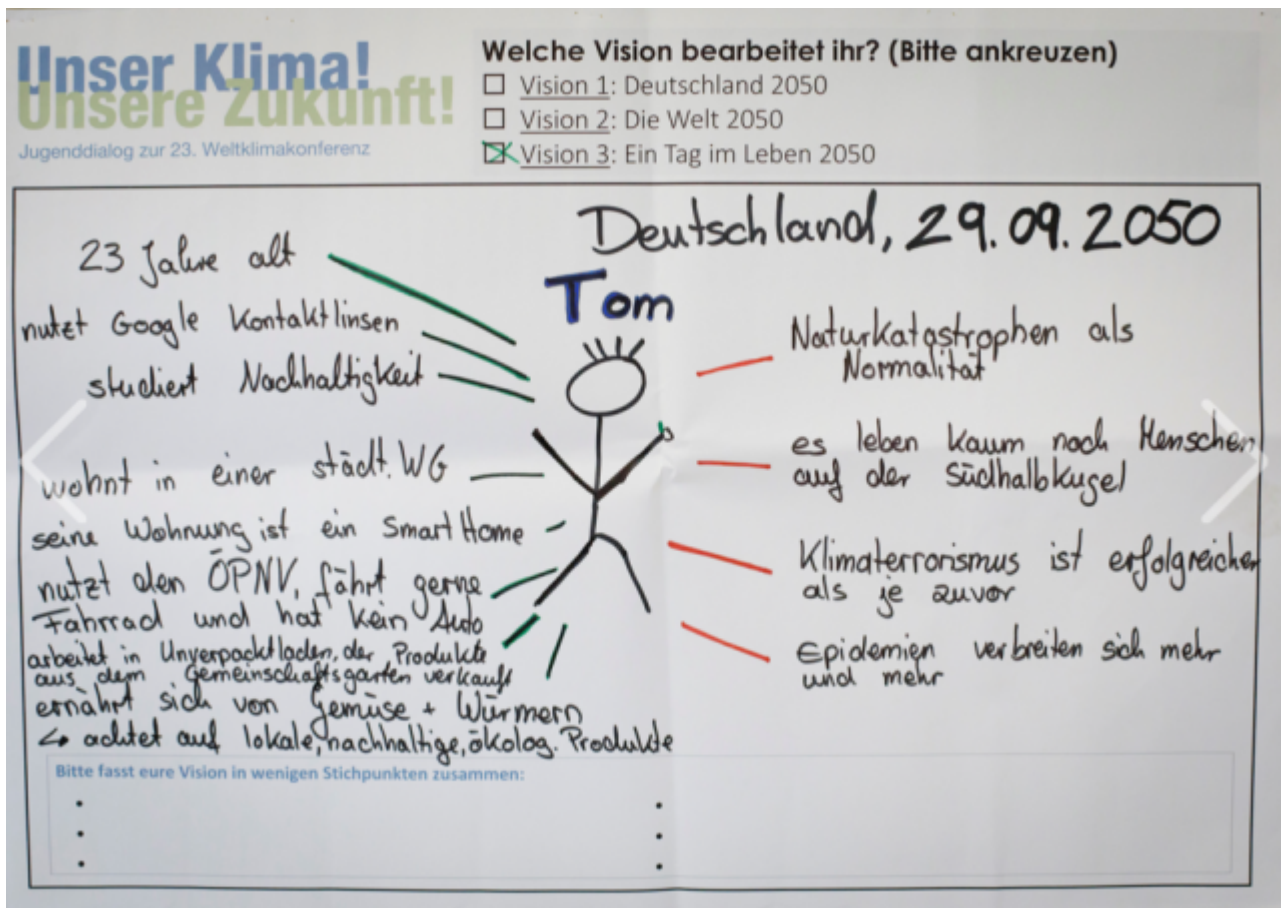 Unser Klima!
Unsere Zukunft!
Jugenddialog zur 23. Weltklimakonferenz
Welche Vision bearbeitet ihr? (Bitte ankreuzen)
Vision 1: Deutschland 2050
Vision 2: Die Welt 2050
Vision 3: Ein Tag im Leben 2050
Deutschland, 29.09.2050
Tom
23 Jahre alt
nutzt Google Kontaktlinsen
studiert Nachhaltigkeit
wohnt in einer städt. WG
seine Wohnung ist ein Smart Home
nutzt den ÖPNV, fährt gerne
Fahrrad und hat kein Auto
arbeitet in Unverpacktladen, der Produkte
aus dem Gemeinschaftsgarten verkauft
ernährt sich von Gemüse + Würmern
↳ achtet auf lokale, nachhaltige, ökolog. Produkte
Naturkatastrophen als
Normalität
es leben kaum noch Menschen
auf der Südhalbkugel
Klimaterrorismus ist erfolgreicher
als je zuvor
Epidemien verbreiten sich mehr
und mehr
Bitte fasst eure Vision in wenigen Stichpunkten zusammen: